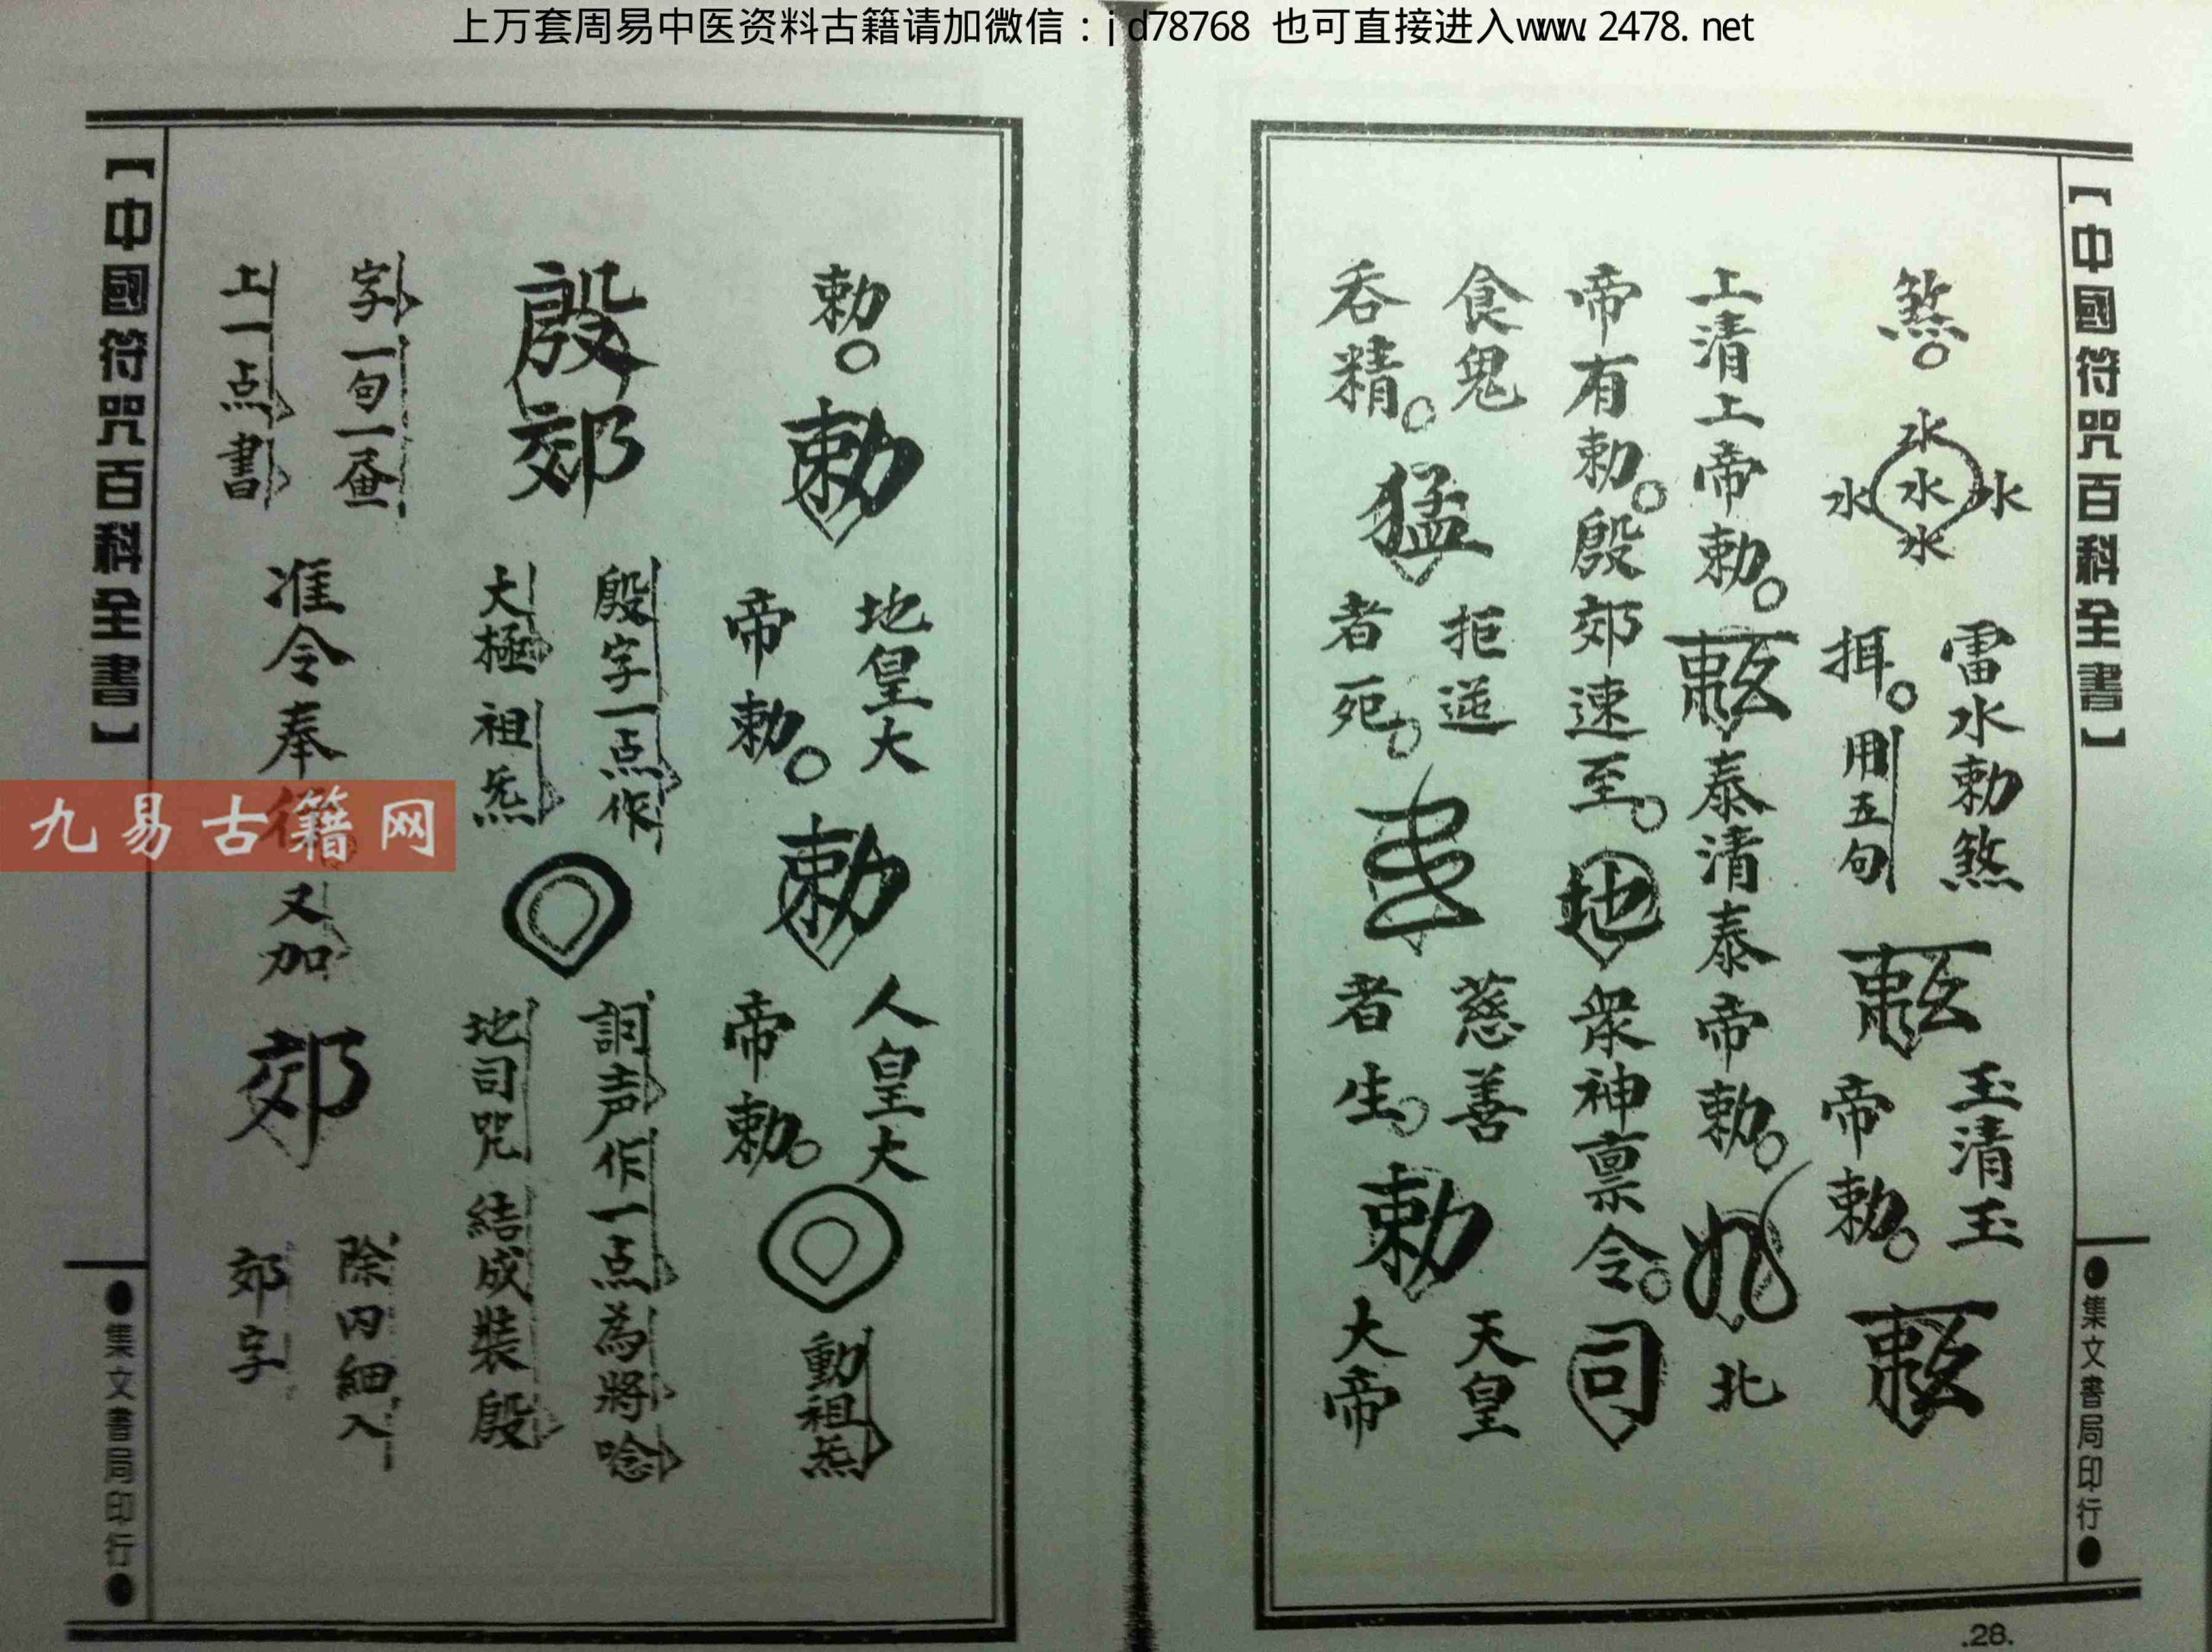 上万套周易中医资料古籍请加微信：jd78768 也可直接进入www.2478.net
【中國符咒百科全書】
●集文書局印行●
煞。
水
水 水 水
水
雷水勅煞
揖。用五句
玉清玉
帝勅。
上清上帝勅。
泰清泰帝勅。
北
帝有勅。殷郊速至。
地
眾神禀令。
司
食鬼
吞精。
猛
拒逆
者死。
慈善
者生。
勅
天皇
大帝
.28.
勅。
勅
地皇大
帝勅。
勅
人皇大
帝勅。
動祖炁
殷郊
殷字一点作
大極祖炁
詞声作一点為將唸
地司咒結成裝殷
字一句一
上一点書
准令奉行。又加
郊
除內細入
郊字
【中國符咒百科全書】
●集文書局印行●
九易古籍网